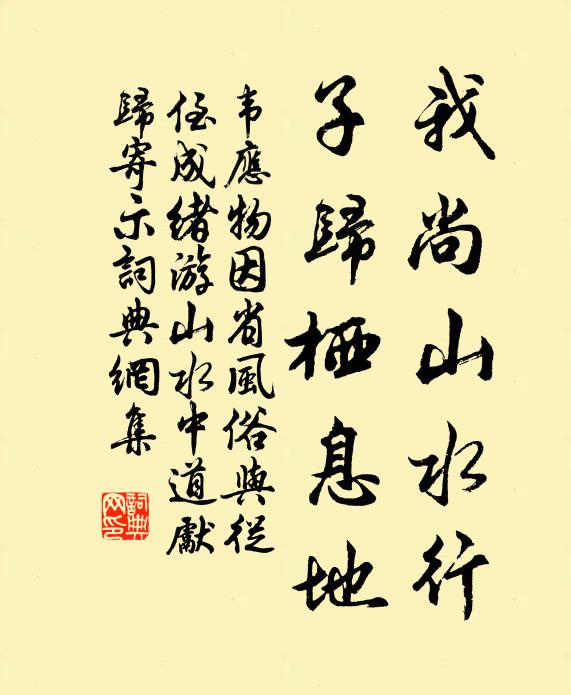 我尚山水行
子歸栖息地
韦應物因省風俗與從
侄成緒游山水中道獻
歸寄示詞典網集
詞典網印